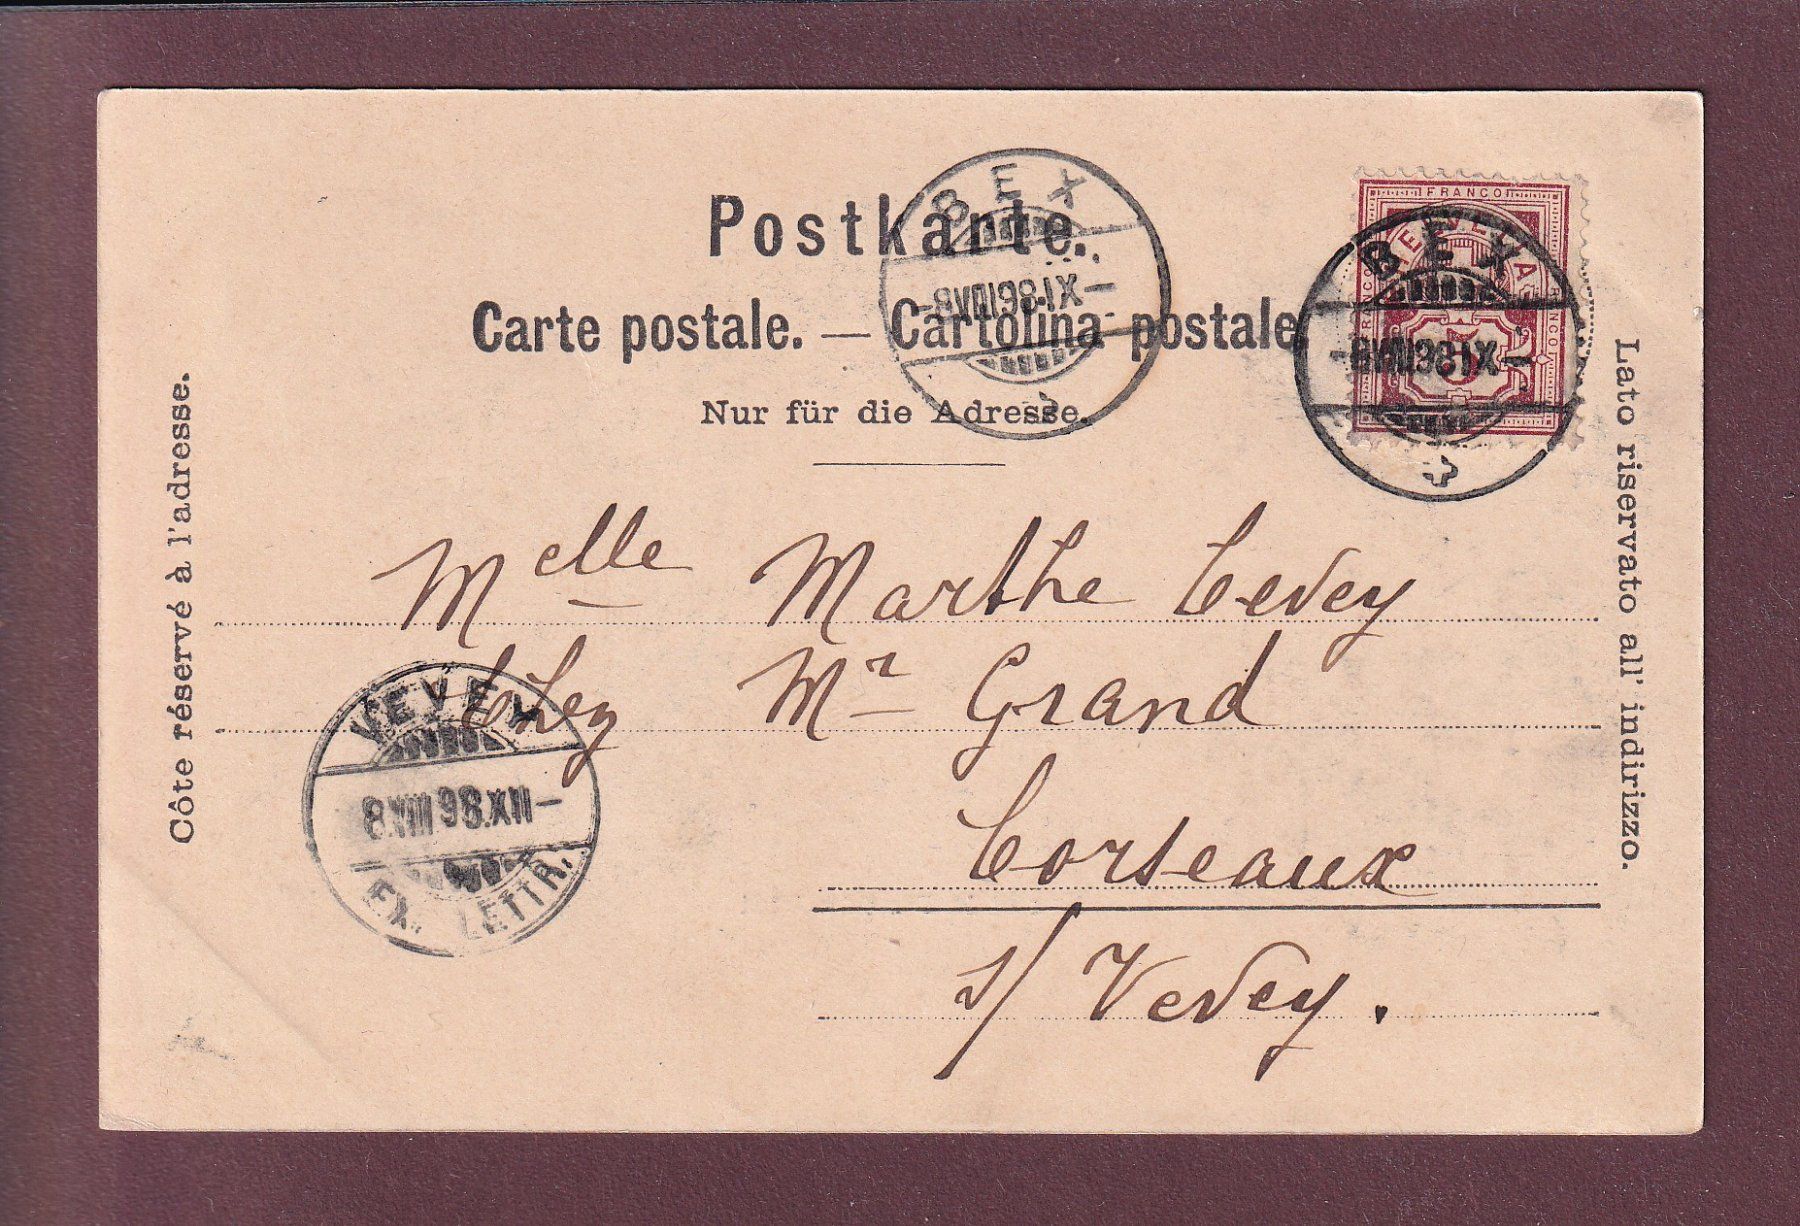 Postkarte.
Carte postale. — Cartolina postale
Nur für die Adresse.
Côte réservé à l'adresse.
Lato riservato all' indirizzo.
FRANCO
HELVETIA
FRANCO
FRANCO
5
BEX
-8.VIII.98.IX-
BEX
-8.VIII.98.IX-
Melle Marthe Cevey
Chez Mr Grand
Corseaux
s/ Vevey.
VEVEY
8.VIII.98.XII-
EX. LETTR.